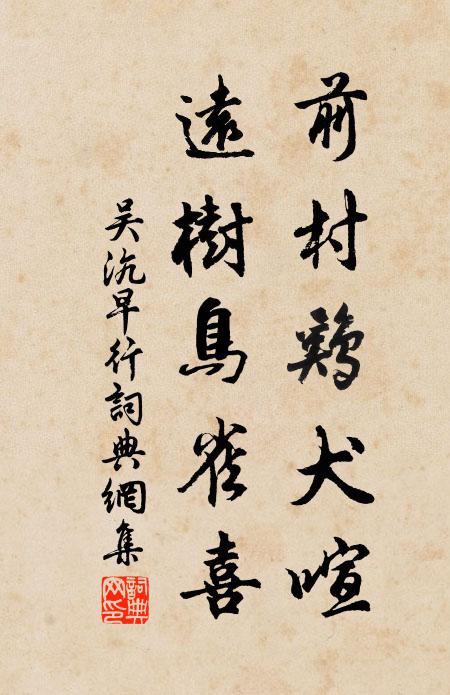 前村鷄犬喧
遠樹鳥雀喜
吴沆早行詞典網集
詞典
网印